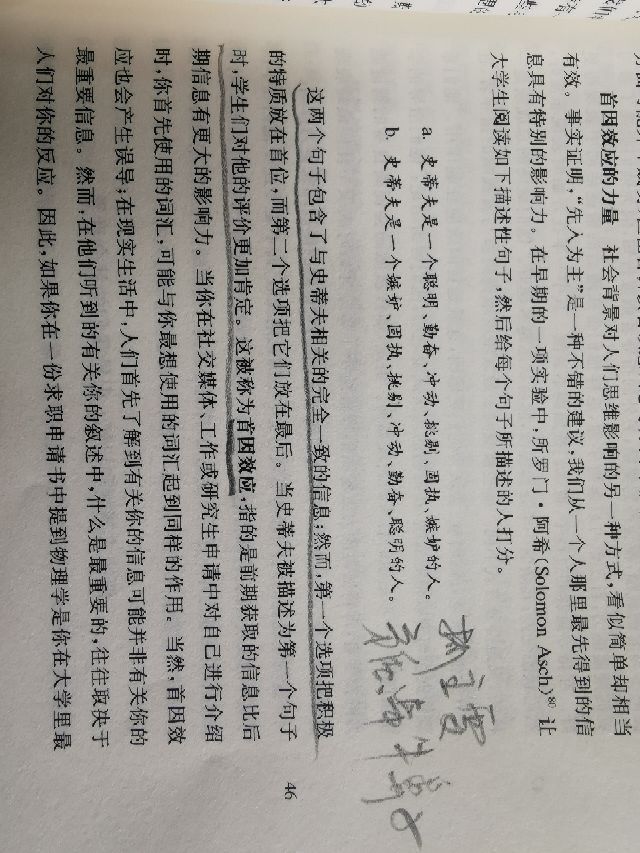 首因效应的力量 社会背景对人们思维影响的另一种方式，看似简单却相当
有效。事实证明，“先入为主”是一种不错的建议，我们从一个人那里最先得到的信
息具有特别的影响力。在早期的一项实验中，所罗门·阿希（Solomon Asch）⁸⁰ 让
大学生阅读如下描述性句子，然后给每个句子所描述的人打分。
a. 史蒂夫是一个聪明、勤奋、冲动、挑剔、固执、嫉妒的人。
b. 史蒂夫是一个嫉妒、固执、挑剔、冲动、勤奋、聪明的人。
这两个句子包含了与史蒂夫相关的完全一致的信息；然而，第一个选项把积极
的特质放在首位，而第二个选项把它们放在最后。当史蒂夫被描述为第一个句子
时，学生们对他的评价更加肯定。这被称为首因效应，指的是前期获取的信息比后
期信息有更大的影响力。当你在社交媒体、工作或研究生申请中对自己进行介绍
时，你首先使用的词汇，可能与你最想使用的词汇起到同样的作用。当然，首因效
应也会产生误导；在现实生活中，人们首先了解到有关你的信息可能并非有关你的
最重要信息。然而，在他们听到的有关你的叙述中，什么是最重要的，往往取决于
人们对你的反应。因此，如果你在一份求职申请书中提到物理学是你在大学里最
46